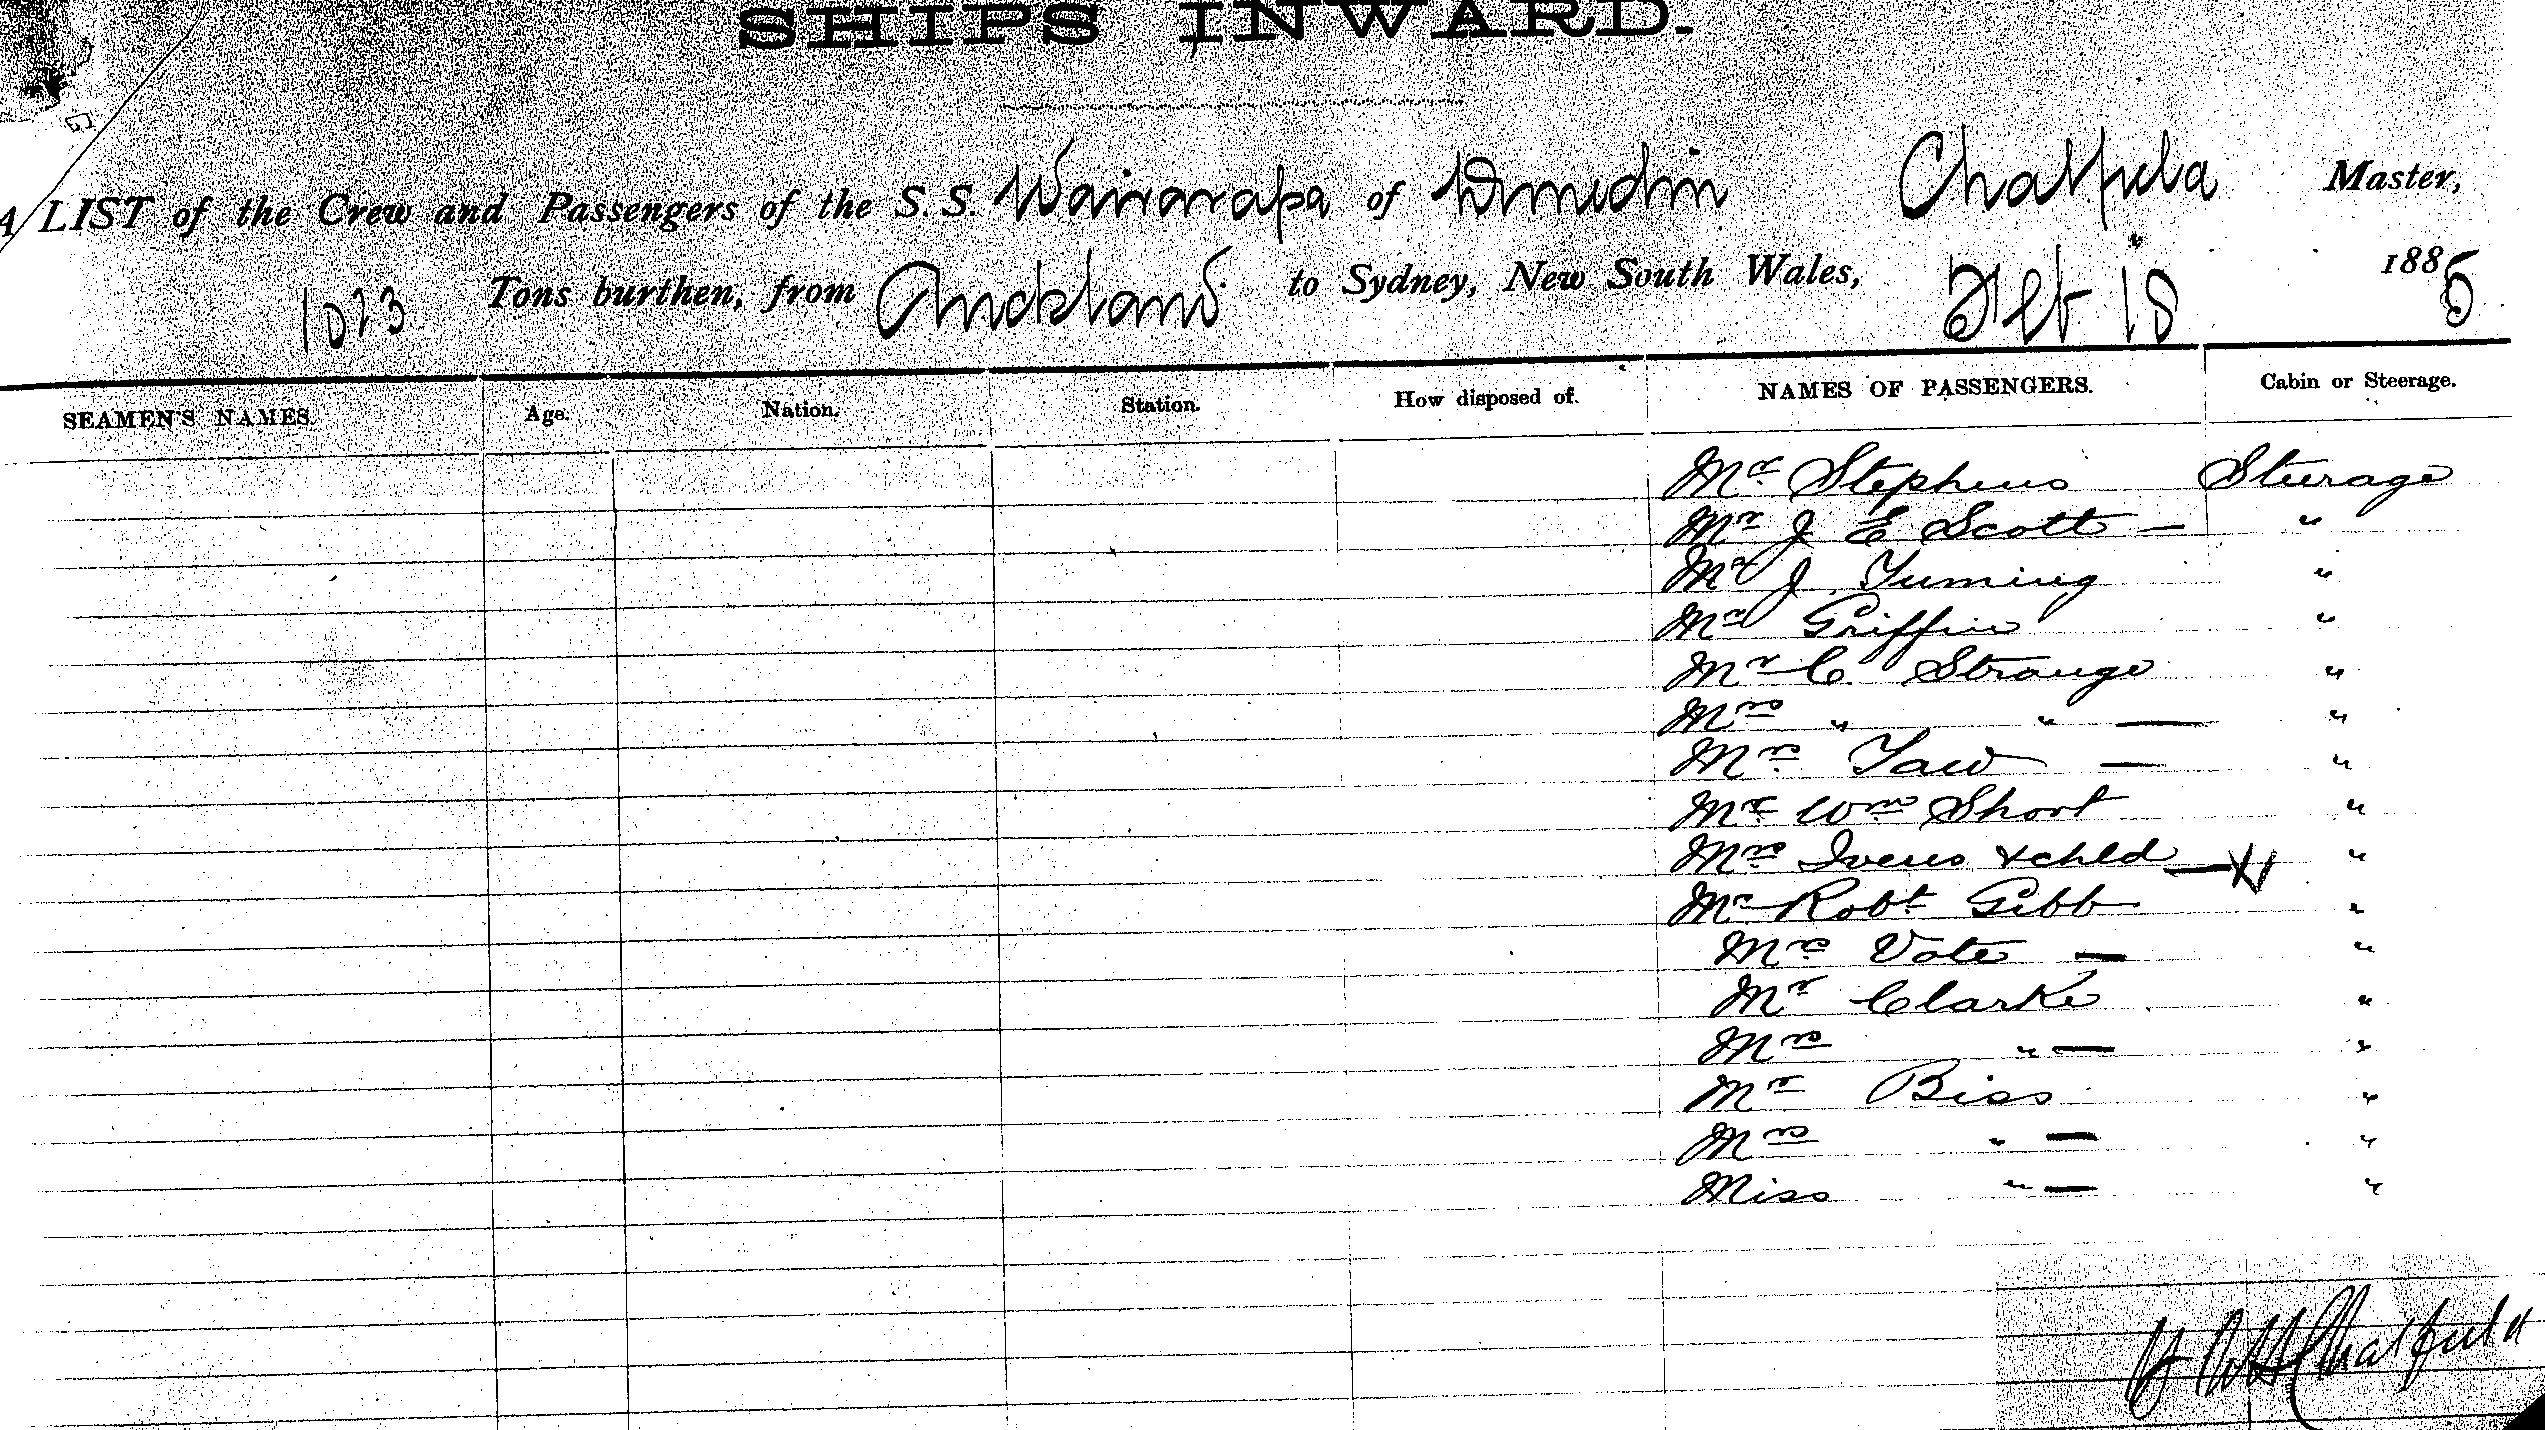 SHIPS INWARD.
A LIST of the Crew and Passengers of the S.S. Wairarapa of Dunedin Chatfield Master,
1023 Tons burthen, from Auckland to Sydney, New South Wales, Feb 18 1885
SEAMEN'S NAMES. Age. Nation. Station. How disposed of. NAMES OF PASSENGERS. Cabin or Steerage.
Mr Stephens Steerage
Mr J E Scott — "
Mr J "
Mr Griffin "
Mr C Strange "
Mrs " " — "
Mrs — "
Mr Wm Short "
Mrs Ivens & chld — "
Mr Robt Gibb "
Mrs Vote — "
Mr Clarke "
Mrs " — "
Mr Biss "
Mrs " — "
Miss " — "
Chatfield